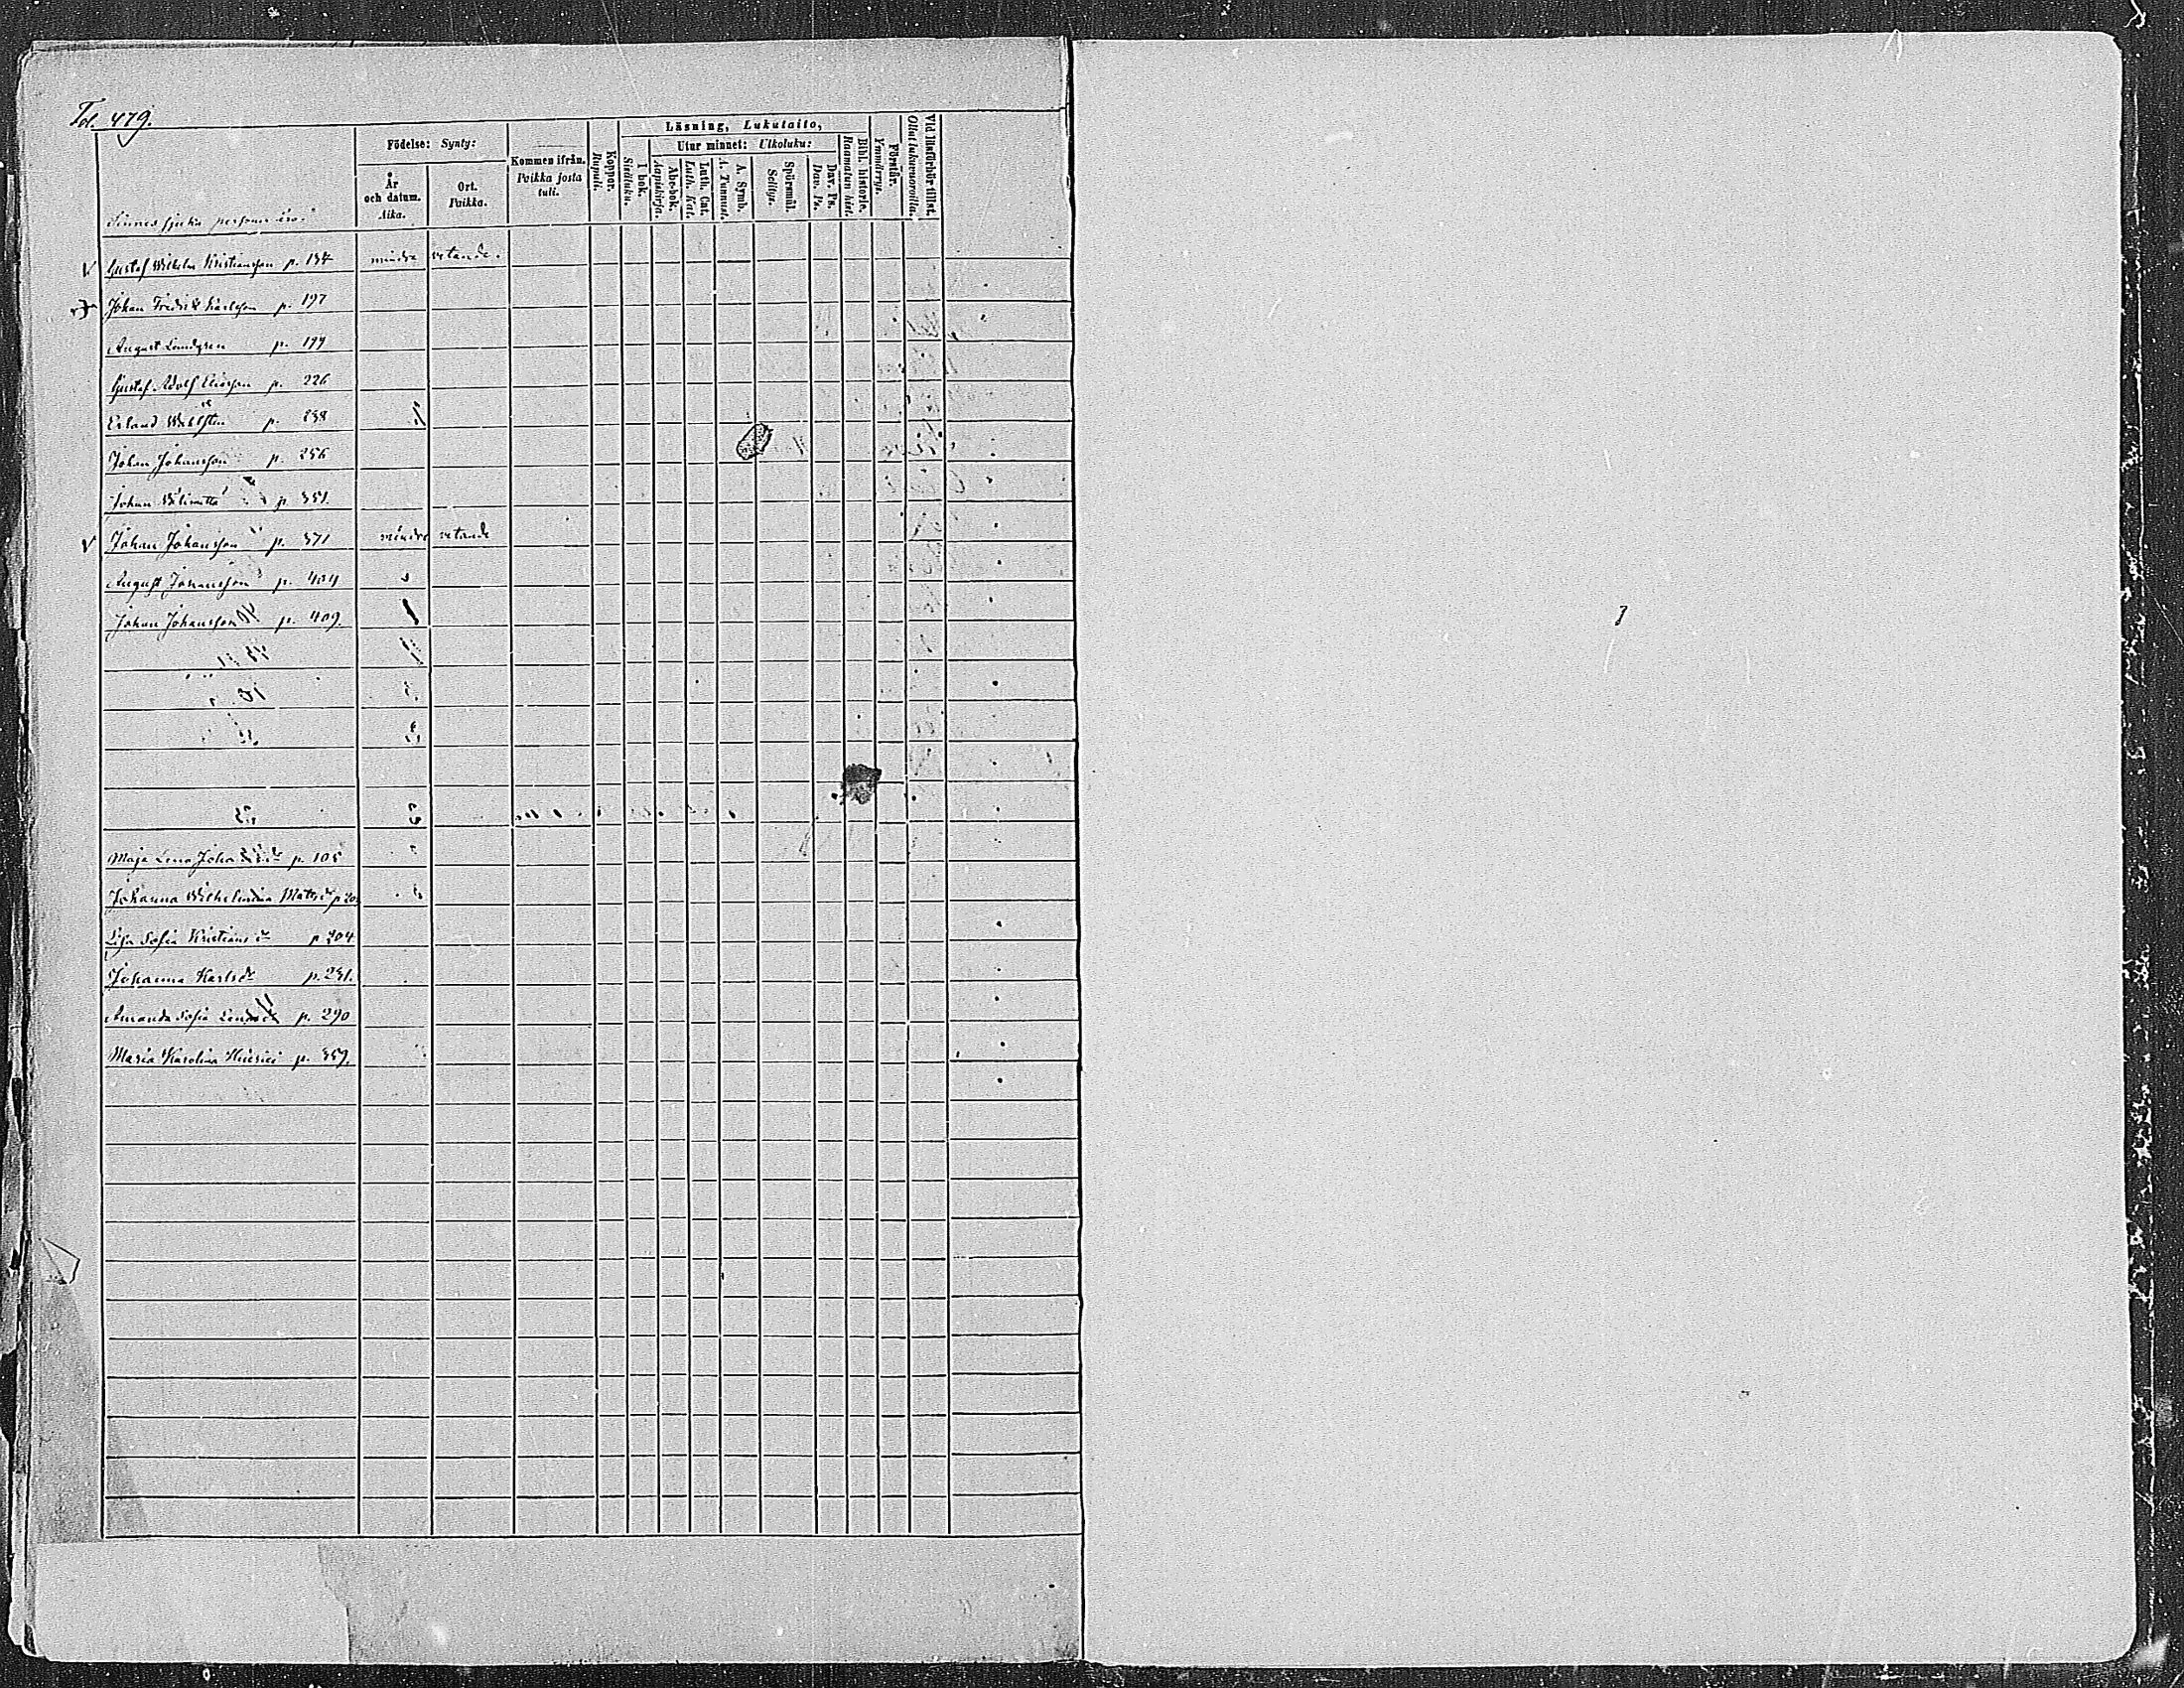 Fol. 479.
Läsning, Lukutaito,
Födelse: Synty:
Utur minnet: Ulkoluku:
Kommen ifrån.
Paikka josta tuli.
År och datum.
Aika.
Ort.
Paikka.
Koppor.
Rupuli.
I bok.
Sisäluku.
Abc-bok.
Aapiskirja.
Luth. Cat.
Luth. Kat.
A. Symb.
A. Tunnust.
Spörsmål.
Selitys.
Dav. Ps.
Dav. Ps.
Bibl. historie.
Raamatun hist.
Förstår.
Ymmärrys.
Vid läsförhör tillst.
Ollut lukuvuoroilla.
Sinnessjuka personer äro:
Gustaf Wilhelm Kristiansson p. 134 mindre vetande.
Johan Fredrik Karlsson p. 197
August Lindgren p. 199
Gustaf Adolf Eliasson p. 226
Erland p. 238
Johan Johansson p. 256
Johan p. 351.
Johan Johansson p. 371 mindre vetande
August Johansson p. 404
Johan Johansson p. 409.
Maja Lena p. 105
Johanna Wilhelmina Matsdr
Lisa Sofia Kristiansdr p. 204
Johanna Karlsdr p. 231.
Amanda Sofia p. 290
Maria Karolina p. 359.